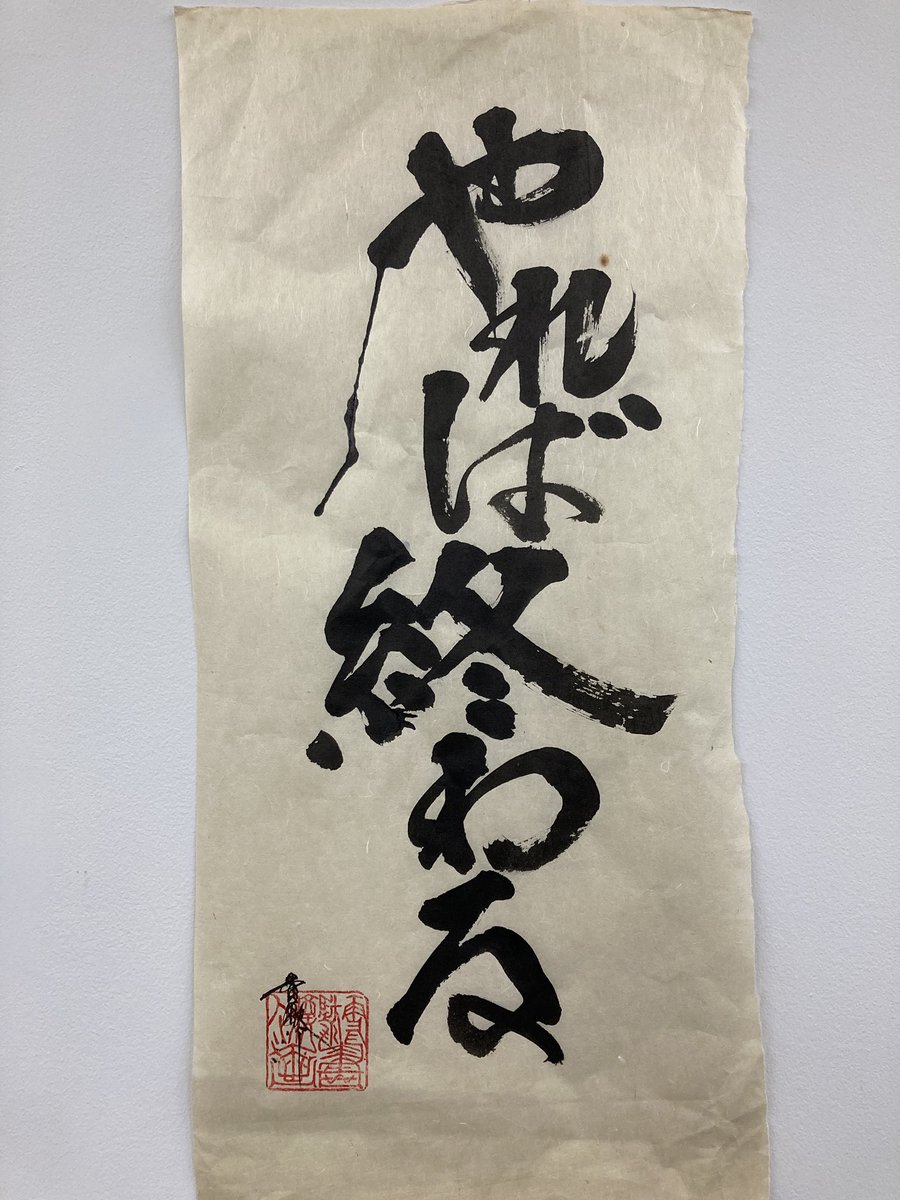 やれば終わる